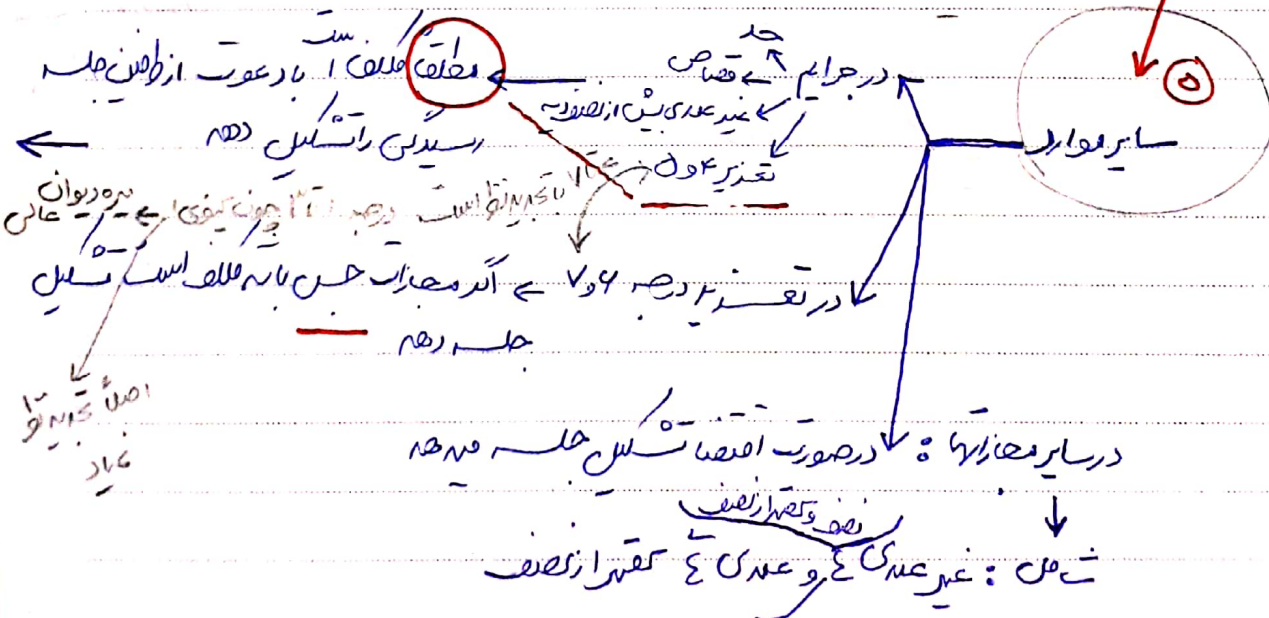 ۵
سایر موارد
در جرایم
حد
قصاص
غیر عمدی بیش از نصف دیه
تعزیر ۴ و ۵
مطلقاً مکلف است با دعوت از طرفین جلسه
رسیدگی را تشکیل دهد
تجدیدنظر است درجه ۱ تا ۳ چون کیفری۱ میره دیوان عالی
اصلاً تجدید نظر نمیاد
در تعزیر درجه ۶ و ۷ اگر مجازات حبس باشد مکلف است تشکیل
جلسه دهد
در سایر مجازاتها : در صورت اقتضا تشکیل جلسه میدهد
نصف و کمتر از نصف
شامل : غیر عمدی و عمدی کمتر از نصف